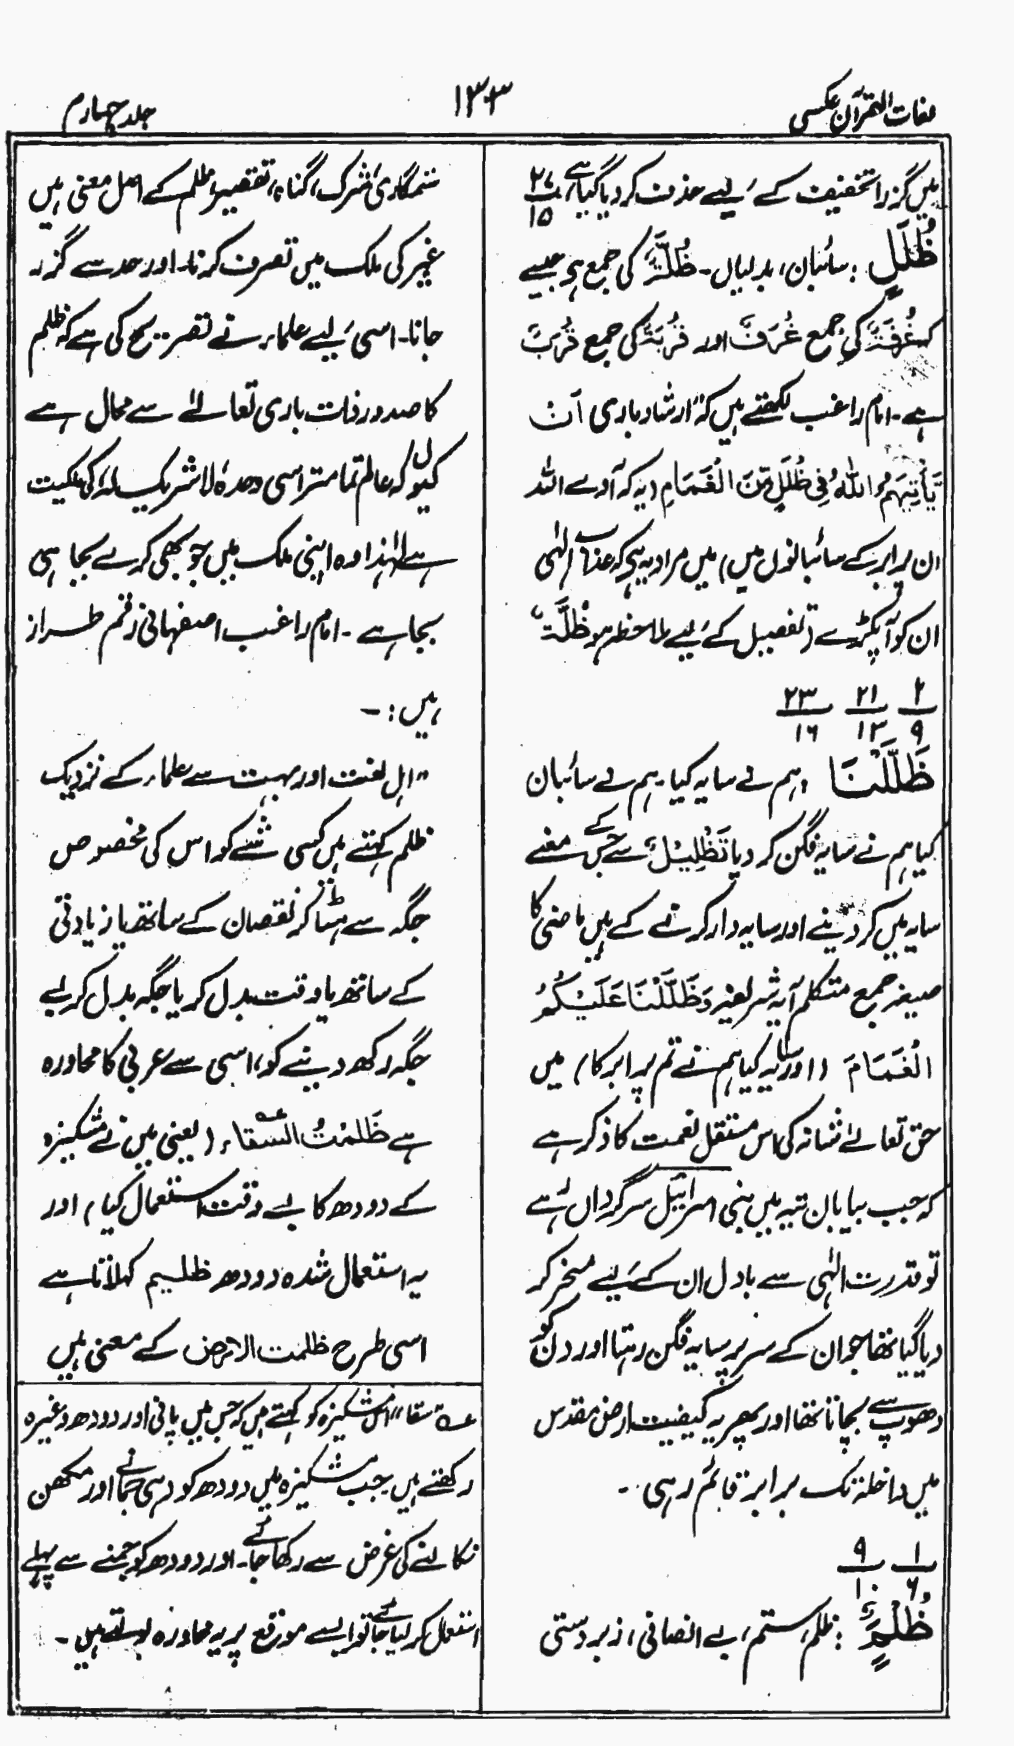 لغات القرآن عکسی
۱۳۳
جلد چہارم
میں گزرا تخفیف کے لیے حذف کر دیا گیا ہے، ۲۷/۱۵
ظُلَلٍ : سائبان، بدلیاں۔ ظُلَّۃٌ کی جمع ہے جیسے
کہ غُرْفَۃٌ کی جمع غُرَفٌ اور قُرْبَۃٌ کی جمع قُرَبٌ
ہے۔ امام راغب لکھتے ہیں کہ ارشاد باری اَنْ
یَّأْتِیَہُمُ اللہُ فِیْ ظُلَلٍ مِّنَ الْغَمَامِ (یہ کہ آوے اللہ
ان پر ابر کے سائبانوں میں) میں مراد یہ ہے کہ عذاب الٰہی
ان کو آ پکڑے (تفصیل کے لیے ملاحظہ ہو ظُلَّۃ)
۲/۹ ۲۱/۱۳ ۲۳/۱۶
ظَلَّلْنَا : ہم نے سایہ کیا۔ ہم نے سائبان
کیا ہم نے سایہ فگن کر دیا تَظْلِیْلٌ سے جس کے معنے
سایہ میں کر دینے اور سایہ دار کرنے کے ہیں ماضی کا
صیغہ جمع متکلم آیہ شریفہ وَظَلَّلْنَا عَلَیْکُمُ
الْغَمَامَ (اور سایہ کیا ہم نے تم پر ابر کا) میں
حق تعالےٰ شانہ کی اس مستقل نعمت کا ذکر ہے
کہ جب بیابان تیہ میں بنی اسرائیل سرگرداں رہے
تو قدرت الٰہی سے بادل ان کے لیے مسخر کر
دیا گیا تھا جو ان کے سر پر سایہ فگن رہتا اور دن کو
دھوپ سے بچاتا تھا اور پھر یہ کیفیت ارض مقدس
میں داخلہ تک برابر قائم رہی ۔
۱/۶ ۹/۱۰
ظُلْمٍ : ظلم، ستم، بے انصافی، زبردستی
ستمگاری، شرک، گناہ، تقصیر، ظلم کے اصل معنی ہیں
غیر کی ملک میں تصرف کرنا۔ اور حد سے گزر
جانا۔ اسی لیے علماء نے تصریح کی ہے کہ ظلم
کا صدور ذات باری تعالےٰ سے محال ہے
کیوں کہ عالم تمامتر اسی وحدہٗ لا شریک لہٗ کی ملکیت
ہے لہٰذا وہ اپنی ملک میں جو بھی کرے بجا ہی
بجا ہے ۔ امام راغب اصفہانی رقم طراز
ہیں :۔
”اہل لغت اور بہت سے علماء کے نزدیک
ظلم کہتے ہیں کسی شے کو اس کی مخصوص
جگہ سے ہٹا کر نقصان کے ساتھ یا زیادتی
کے ساتھ یا وقت بدل کر یا جگہ بدل کر بے
جگہ رکھ دینے کو، اسی سے عربی کا محاورہ
ہے ظَلَمْتُ السقاء عہ (یعنی میں نے مشکیزہ
کے دودھ کا بے وقت استعمال کیا) اور
یہ استعمال شدہ دودھ ظلیم کہلاتا ہے
اسی طرح ظلمت الارض کے معنی ہیں
عہ ”سقا“ اس مشکیزہ کو کہتے ہیں کہ جس میں پانی اور دودھ وغیرہ
رکھتے ہیں جب مشکیزہ میں دودھ کو دہی جمانے اور مکھن
نکالنے کی غرض سے رکھا جائے۔ اور دودھ کو جمنے سے پہلے
استعمال کر لیا جائے تو ایسے موقع پر یہ محاورہ بولتے ہیں ۔